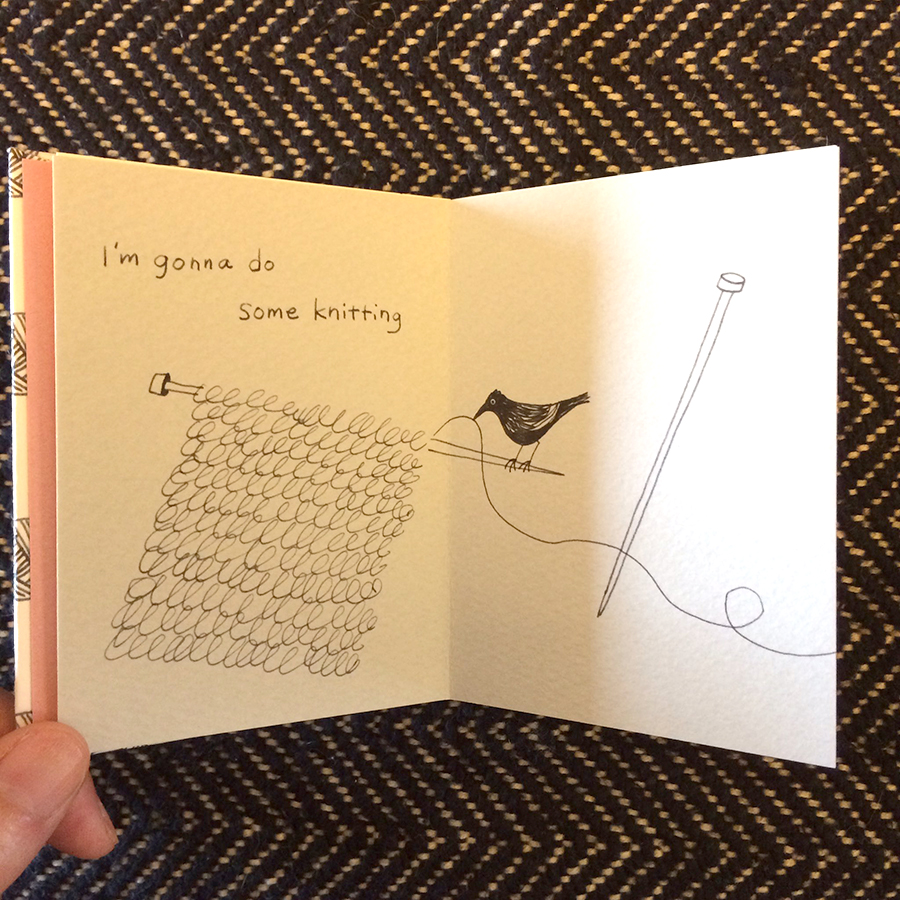 I'm gonna do
some knitting